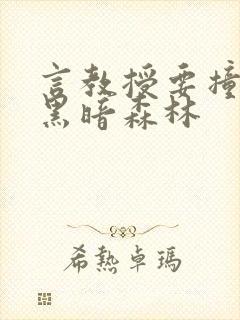 言教授要撞
黑暗森林
希熱卓瑪